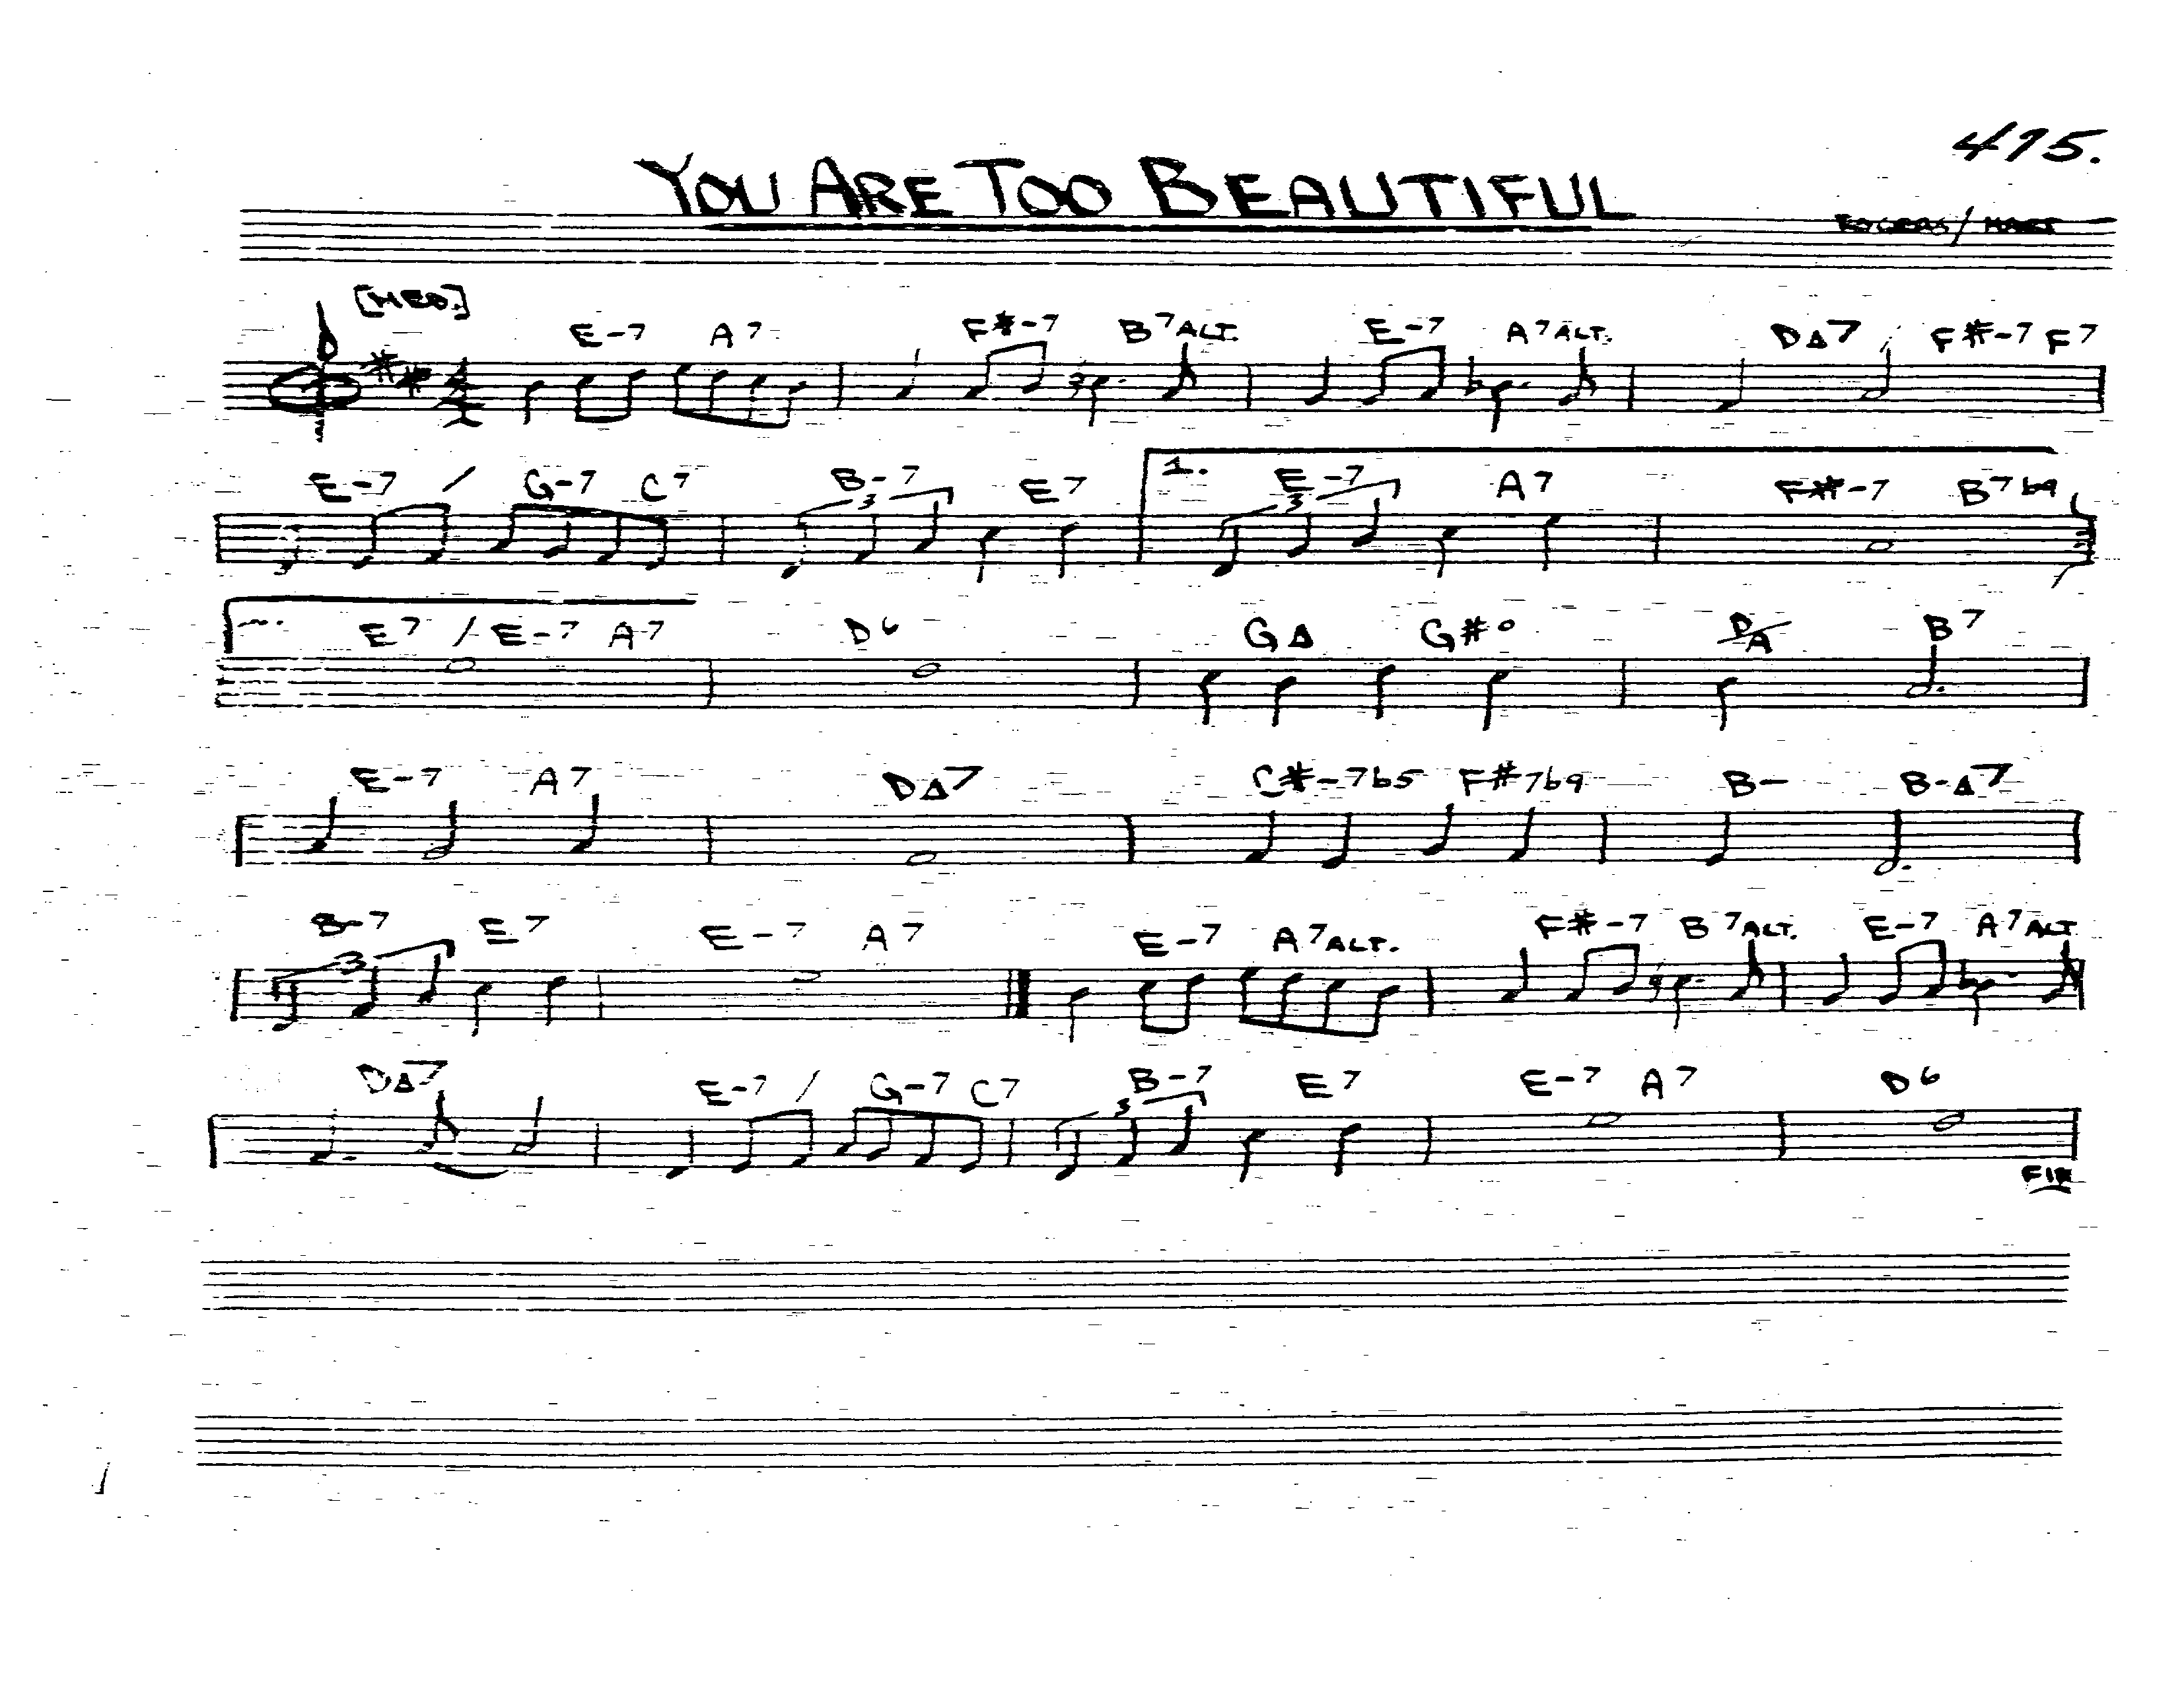 415.
YOU ARE TOO BEAUTIFUL
ROGERS/HART
[MED.]
E-7 A7 F#-7 B7ALT. E-7 A7ALT. D∆7 F#-7 F7
E-7 / G-7 C7 B-7 E7 1. E-7 A7 F#-7 B7b9
3 3
E7 / E-7 A7 D6 G∆ G#° D/A B7
E-7 A7 D∆7 C#-7b5 F#7b9 B- B-∆7
B-7 E7 E-7 A7 E-7 A7ALT. F#-7 B7ALT. E-7 A7ALT
3
D∆7 E-7 / G-7 C7 B-7 E7 E-7 A7 D6
3
FINE